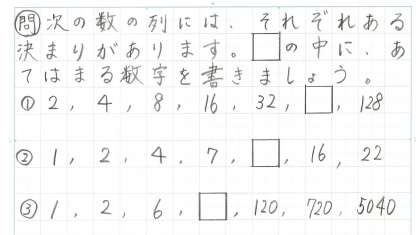 問 次の数の列には、それぞれある
決まりがあります。□の中に、あ
てはまる数字を書きましょう。
① 2, 4, 8, 16, 32, □, 128
② 1, 2, 4, 7, □, 16, 22
③ 1, 2, 6, □, 120, 720, 5040